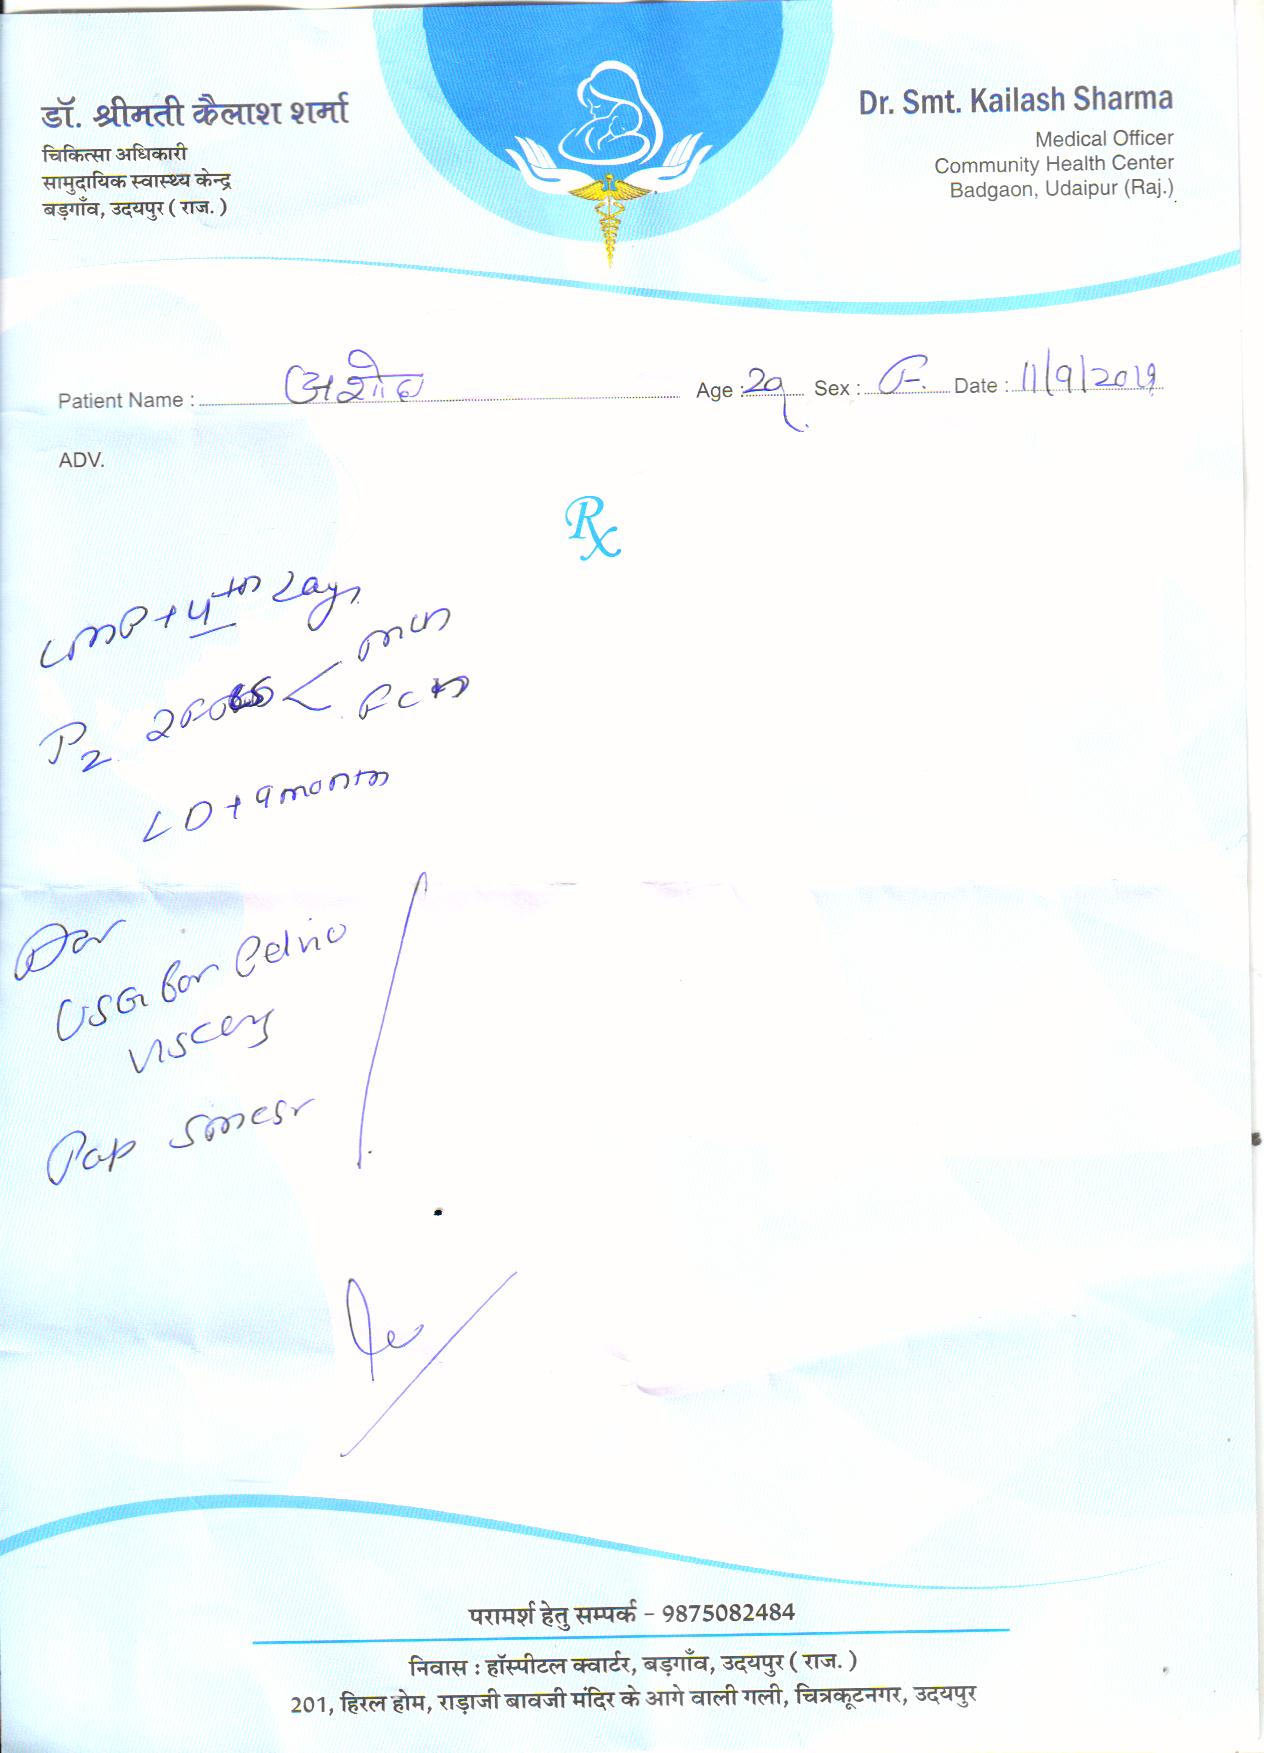 डॉ. श्रीमती कैलाश शर्मा
चिकित्सा अधिकारी
सामुदायिक स्वास्थ्य केन्द्र
बड़गाँव, उदयपुर ( राज. )
Dr. Smt. Kailash Sharma
Medical Officer
Community Health Center
Badgaon, Udaipur (Raj.)
Patient Name : Age : 29 Sex : F. Date : 11/9/2019
ADV.
Rx
LMP + 4th days
P2 < mch
Fch
LD + 9 months
USG for Pelvic
viscera
Pap smear
परामर्श हेतु सम्पर्क - 9875082484
निवास : हॉस्पीटल क्वार्टर, बड़गाँव, उदयपुर ( राज. )
201, हिरल होम, राड़ाजी बावजी मंदिर के आगे वाली गली, चित्रकूटनगर, उदयपुर